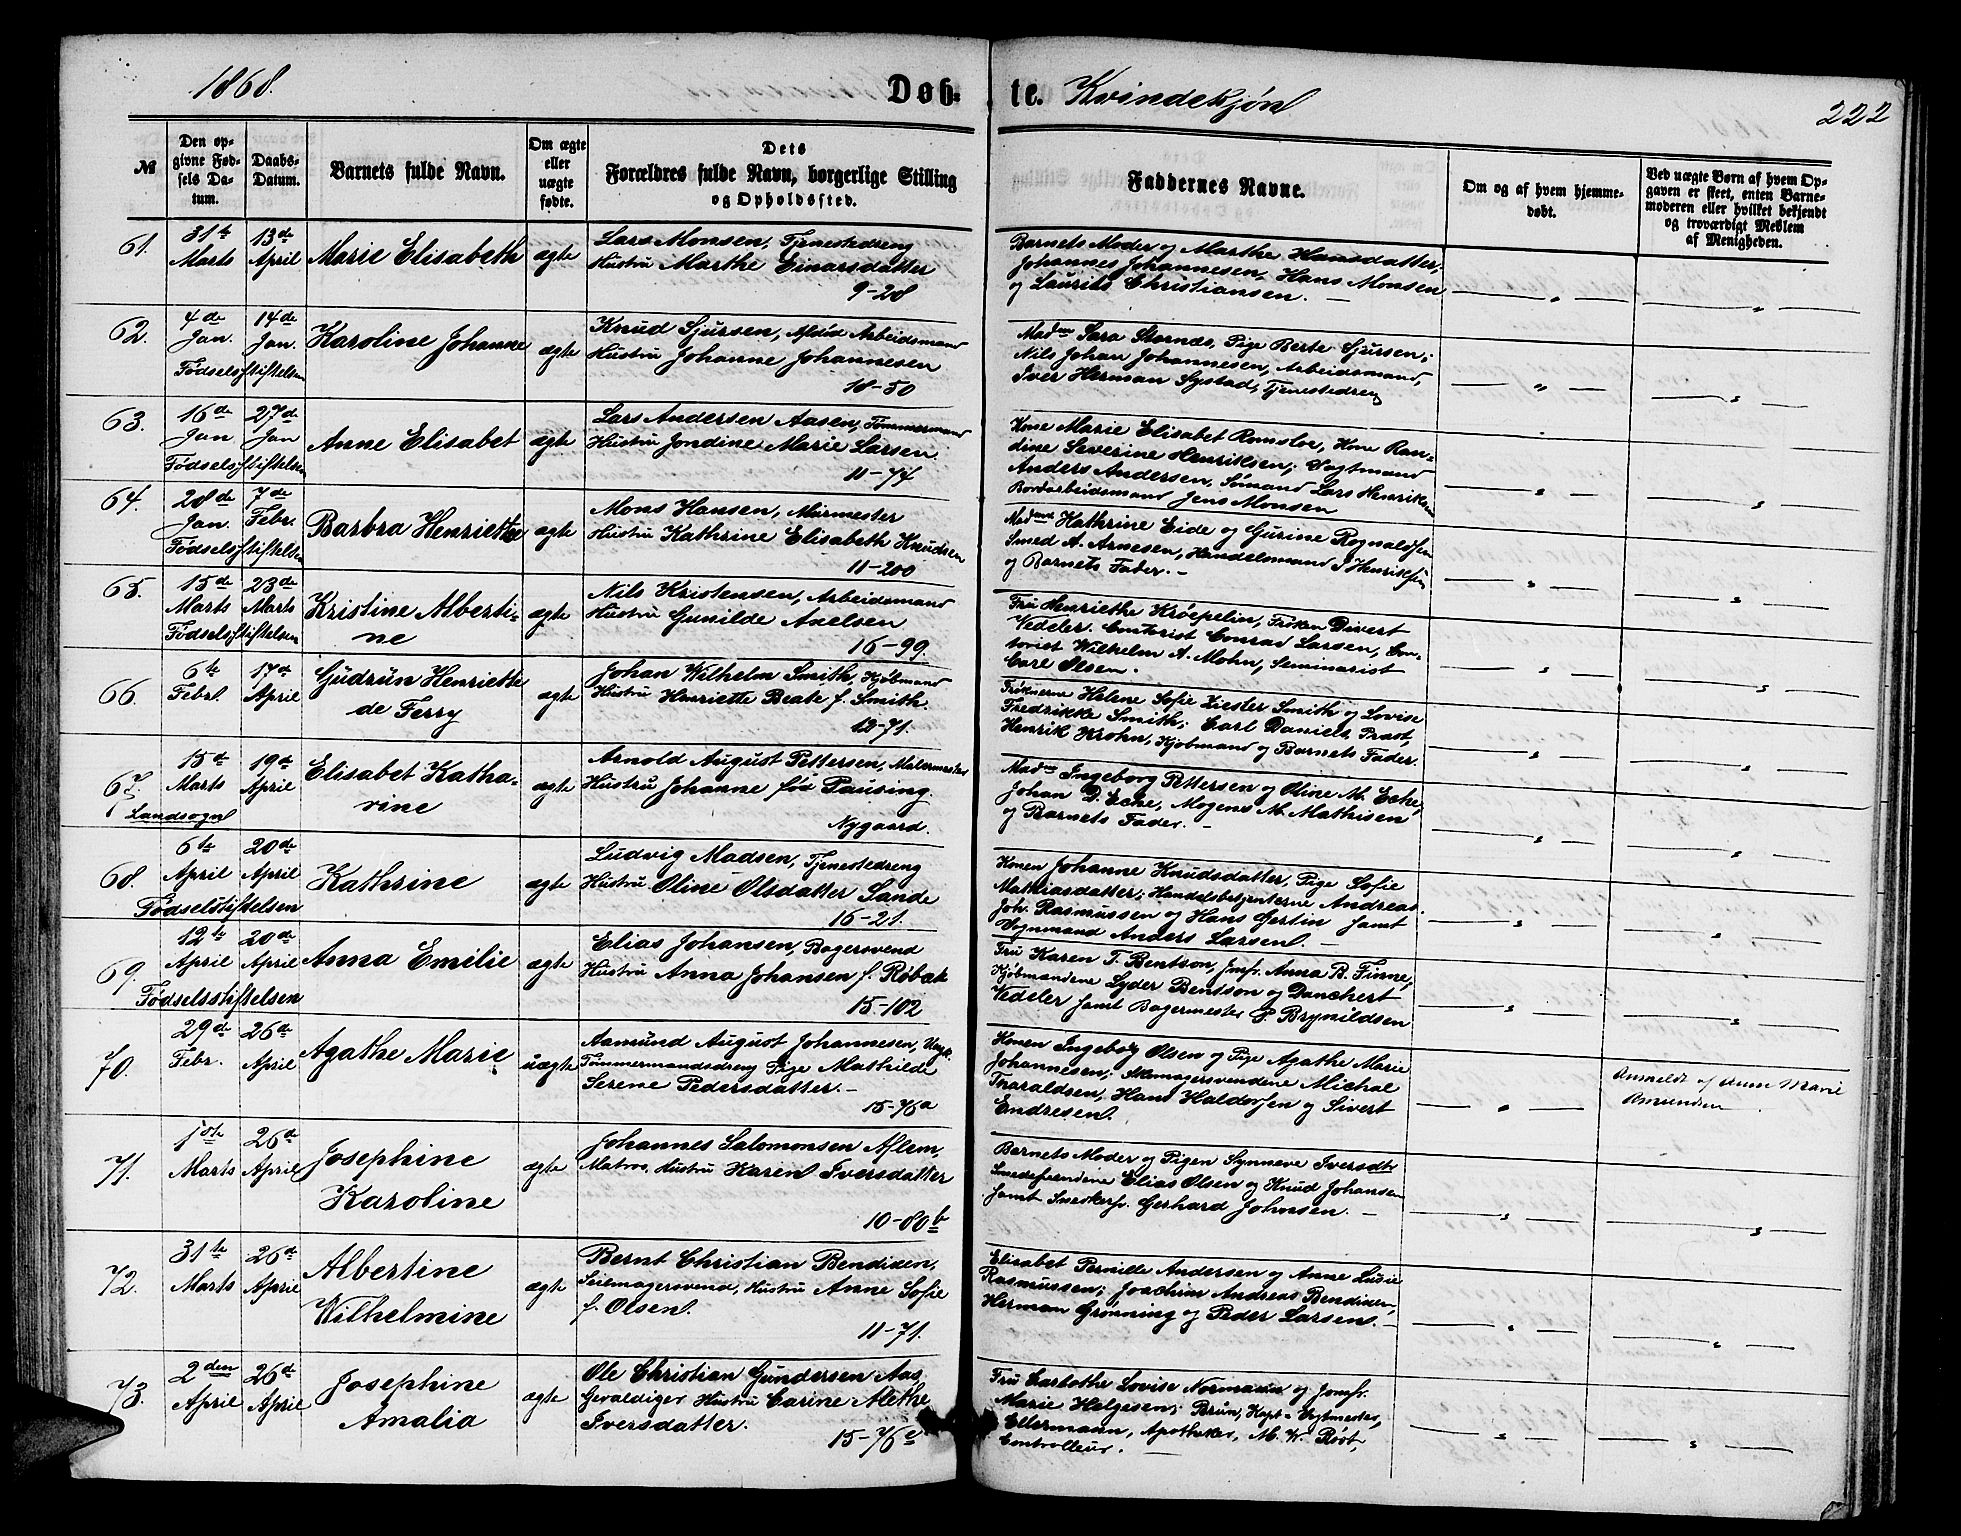 1868.
Døb-
te. Kvindekjøn
222
№
Den op-
givne Fød-
sels Da-
tum.
Daabs-
Datum.
Barnets fulde Navn.
Om ægte
eller
uægte
fødte.
Dets
Forældres fulde Navn, borgerlige Stilling
og Opholdssted.
Faddernes Navne.
Om og af hvem hjemme-
døbt.
Ved uægte Børn af hvem Op-
gaven er skeet, enten Barne-
moderen eller hvilket bekjendt
og troværdigt Medlem
af Menigheden.
61.
31te
Marts
13de
April
Marie Elisabeth
ægte
Lars Monsen, Tjenestedreng
Hustru Marthe Einarsdatter
9-28
Barnets Moder og Marthe Hansdatter;
Johannes Johannesen, Hans Monsen
og Laurits Christiansen. —
62.
4de
Jan.
14de
Jan.
Fødselsstiftelsen
Karoline Johanne
ægte
Knud Sjursen, Afdød Arbeidsmand
Hustru Johanne Johannesen
18-50
Madme Sara Stornæs, Pige Berte Sjursen;
Nils Johan Johannesen, Arbeidsmand,
Iver Herman Systad, Tjenestedreng
63.
16de
Jan
27de
Jan
Fødselsstiftelsen
Anne Elisabet
ægte
Lars Andersen Aasen, Tømmermand
Hustru Jondine Marie Larsen.
11-74
Kone Marie Elisabet Romsloe, Kone Ran-
dine Severine Henriksen; Vogtmand
Anders Andersen, Sømand Lars Henriksen
Bordarbeidsmand Jens Monsen
64.
28de
Jan.
7de
Febr.
Fødselsstiftelsen
Barbra Henriette
ægte
Mons Hansen, Murmester
Hustru Kathrine Elisabeth Knudsen
11-200
Madmme Kathrine Eide og Gurine Rognaldsen
Smed A. Arnesen, Handelsmand J Henriksen
og Barnets Fader. —
65.
15de
Marts
23de
Marts
Fødselsstiftelsen
Kristine Alberti-
ne
ægte
Nils Kristensen, Arbeidsmand
Hustru Gunilde Axelsen
16-99.
Fru Henriethe Krøepelin, Frøken Divert
Vedeler. Contorist Conrad Larsen, Con-
torist Wilhelm A. Mohn, Seminarist
Carl Olsen.
66.
6te
Febr.
17de
April
Gudrun Henriette
de Ferry
ægte
Johan Wilhelm Smith, Kjøbmand
Hustru Henriette Beate f. Smith.
13-71.
Frøknerne Helene Sofie Ziesler Smith og Lovise
Fredrikke Smith; Carl Daniels Prast,
Henrik Krohn, Kjøbmand og Barnets Fader.
67.
Landsogn
15de
Marts
19de
April
Elisabet Katha-
rine
ægte
Arnold August Pettersen, Malermester
Hustru Johanne fød Pausing.
Nygaard.
Madme Ingeborg Pettersen og Oline M. Ecke,
Johan D. Ecke, Mogens M. Mathisen
og Barnets Fader. —
68.
6te
April
20de
April
Fødselstiftelsen
Kathrine
ægte
Ludvig Madsen, Tjenestedreng
Hustru Oline Olsdatter Sande
16-21.
Konen Johanne Knudsdatter, Pige Sofie
Mathiasdatter; Handelsbetjenterne Andreas
Joh. Rasmussen og Hans Gertin samt
Vognmand Anders Larsen. —
69.
12te
April
20de
April
Fødselsstiftelsen
Anna Emilie
ægte
Elias Johansen, Bagersvend
Hustru Anna Johansen f. Røbak
15-102
Fru Karen T. Bentson, Jmfr. Anna B. Finne,
Kjøbmændene Lyder Bentson og Danchert
Vedeler samt Bagermester P. Brynildsen
70.
29de
Febr.
26de
April
Agathe Marie
uægte
Aamund August Johannesen, Ungk.
Tømmermandsdreng Pige Mathilde
Serene Pedersdatter. —
15-76a
Konen Ingeborg Olsen og Pige Agathe Marie
Johannesen; Skomagersvendene Michal
Tharaldsen, Hans Haldorsen og Sivert
Endresen.
Anmeldt af Anne Marie
Amundsen
71.
1ste
Marts
26de
April
Josephine
Karoline
ægte
Johannes Salomonsen Aflem,
Matros, Hustru Karen Iversdatter
10-80b
Barnets Moder og Pigen Synneve Iversdtr
Smedesvendene Elias Olsen og Knud Johansen
samt Snedkersv. Gerhard Johnsen. —
72.
31te
Marts
26de
April
Albertine
Wilhelmine
ægte
Bernt Christian Bendixen,
Seilmagersvend, Hustru Anne Sofie
f. Olsen.
11-71.
Elisabet Pernille Andersen og Anne Lusie
Rasmussen; Joachim Andreas Bendixen,
Herman Grønning og Peder Larsen. —
73.
2den
April
26de
April
Josephine
Amalia
ægte
Ole Christian Gundersen Aas,
Geraldiger Hustru Carine Alethe
Iversdatter.
15-76c
Fru Karlothe Lovise Normann og Jomfr.
Marie Helgesen; Brun, Kapt. Vogtmester,
Ellermann, Apotheker, M. W. Root,
Controlleur. —